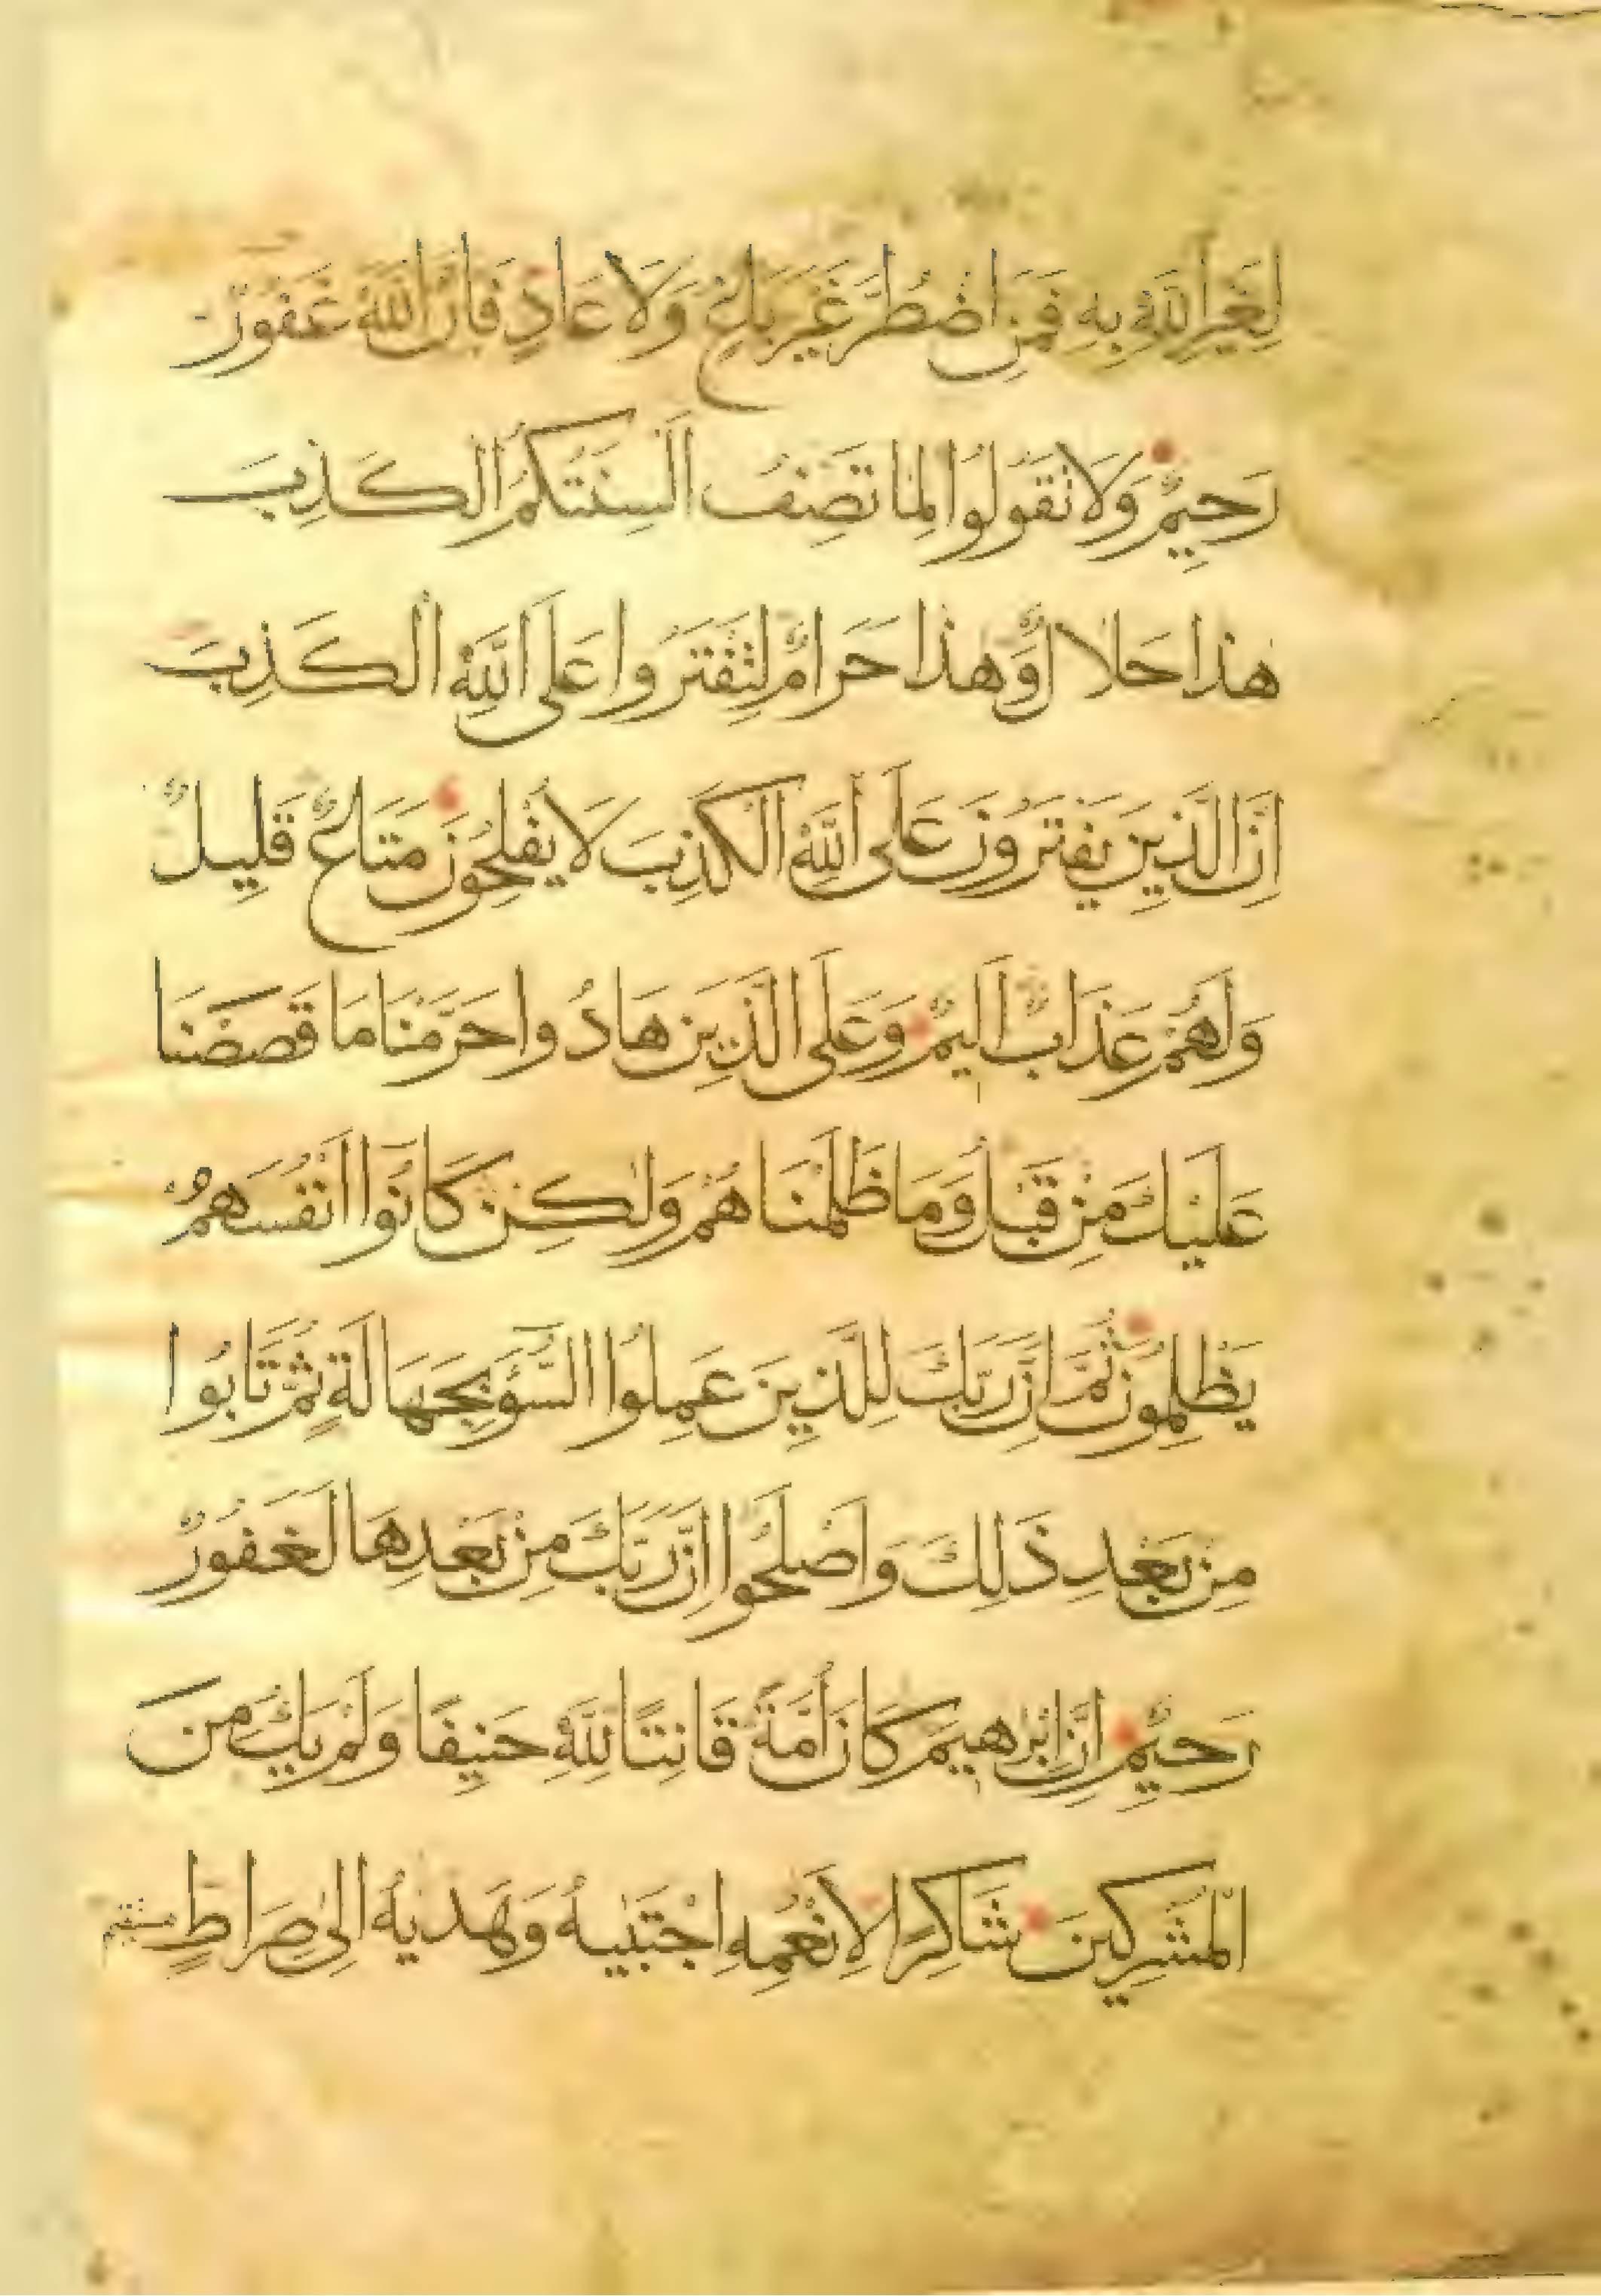 لِغَيْرِ اللَّهِ بِهِ فَمَنِ اضْطُرَّ غَيْرَ بَاغٍ وَلَا عَادٍ فَإِنَّ اللَّهَ غَفُورٌ
رَحِيمٌ وَلَا تَقُولُوا لِمَا تَصِفُ أَلْسِنَتُكُمُ الْكَذِبَ
هٰذَا حَلَالٌ وَهٰذَا حَرَامٌ لِتَفْتَرُوا عَلَى اللَّهِ الْكَذِبَ
اِنَّ الَّذِينَ يَفْتَرُونَ عَلَى اللَّهِ الْكَذِبَ لَا يُفْلِحُونَ مَتَاعٌ قَلِيلٌ
وَلَهُمْ عَذَابٌ اَلِيمٌ وَعَلَى الَّذِينَ هَادُوا حَرَّمْنَا مَا قَصَصْنَا
عَلَيْكَ مِنْ قَبْلُ وَمَا ظَلَمْنَاهُمْ وَلٰكِنْ كَانُوا اَنْفُسَهُمْ
يَظْلِمُونَ ثُمَّ اِنَّ رَبَّكَ لِلَّذِينَ عَمِلُوا السُّوٓءَ بِجَهَالَةٍ ثُمَّ تَابُوا
مِنْ بَعْدِ ذٰلِكَ وَاَصْلَحُوا اِنَّ رَبَّكَ مِنْ بَعْدِهَا لَغَفُورٌ
رَحِيمٌ اِنَّ اِبْرٰهِيمَ كَانَ اُمَّةً قَانِتًا لِلَّهِ حَنِيفًا وَلَمْ يَكُ مِنَ
الْمُشْرِكِينَ شَاكِرًا لِاَنْعُمِهِ اجْتَبٰيهُ وَهَدٰيهُ اِلٰى صِرَاطٍ مستقيم